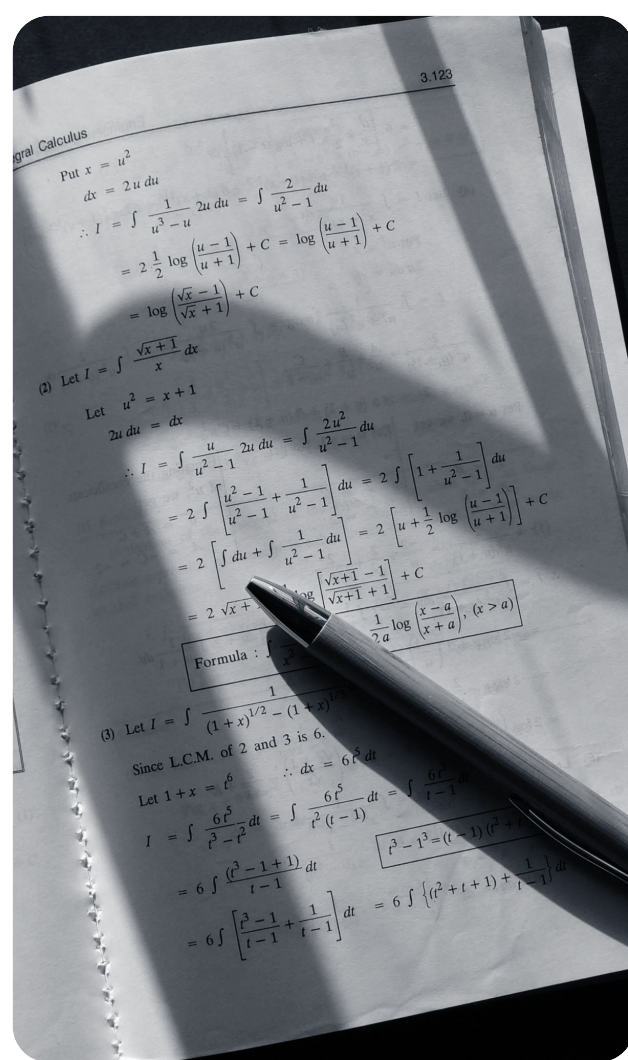 3.123
gral Calculus
Put x = u²
dx = 2u du
∴ I = ∫ 1/(u³ − u) 2u du = ∫ 2/(u² − 1) du
= 2 1/2 log ((u − 1)/(u + 1)) + C = log ((u − 1)/(u + 1)) + C
= log ((√x − 1)/(√x + 1)) + C
(2) Let I = ∫ √(x + 1)/x dx
Let u² = x + 1
2u du = dx
∴ I = ∫ u/(u² − 1) 2u du = ∫ 2u²/(u² − 1) du
= 2 ∫ [(u² − 1)/(u² − 1) + 1/(u² − 1)] du = 2 ∫ [1 + 1/(u² − 1)] du
= 2 [∫ du + ∫ 1/(u² − 1) du] = 2 [u + 1/2 log ((u − 1)/(u + 1))] + C
= 2 √x + log [(√(x+1) − 1)/(√(x+1) + 1)] + C
Formula : ∫ 1/2a log ((x − a)/(x + a)), (x > a)
(3) Let I = ∫ 1/((1 + x)^1/2 − (1 + x)^1/3)
Since L.C.M. of 2 and 3 is 6.
Let 1 + x = t⁶ ∴ dx = 6t⁵ dt
I = ∫ 6t⁵/(t³ − t²) dt = ∫ 6t⁵/(t² (t − 1)) dt = ∫ 6t³/(t − 1) dt
= 6 ∫ (t³ − 1 + 1)/(t − 1) dt
t³ − 1³ = (t − 1) (t² + t
= 6 ∫ [(t³ − 1)/(t − 1) + 1/(t − 1)] dt = 6 ∫ {(t² + t + 1) + 1/(t − 1)} dt